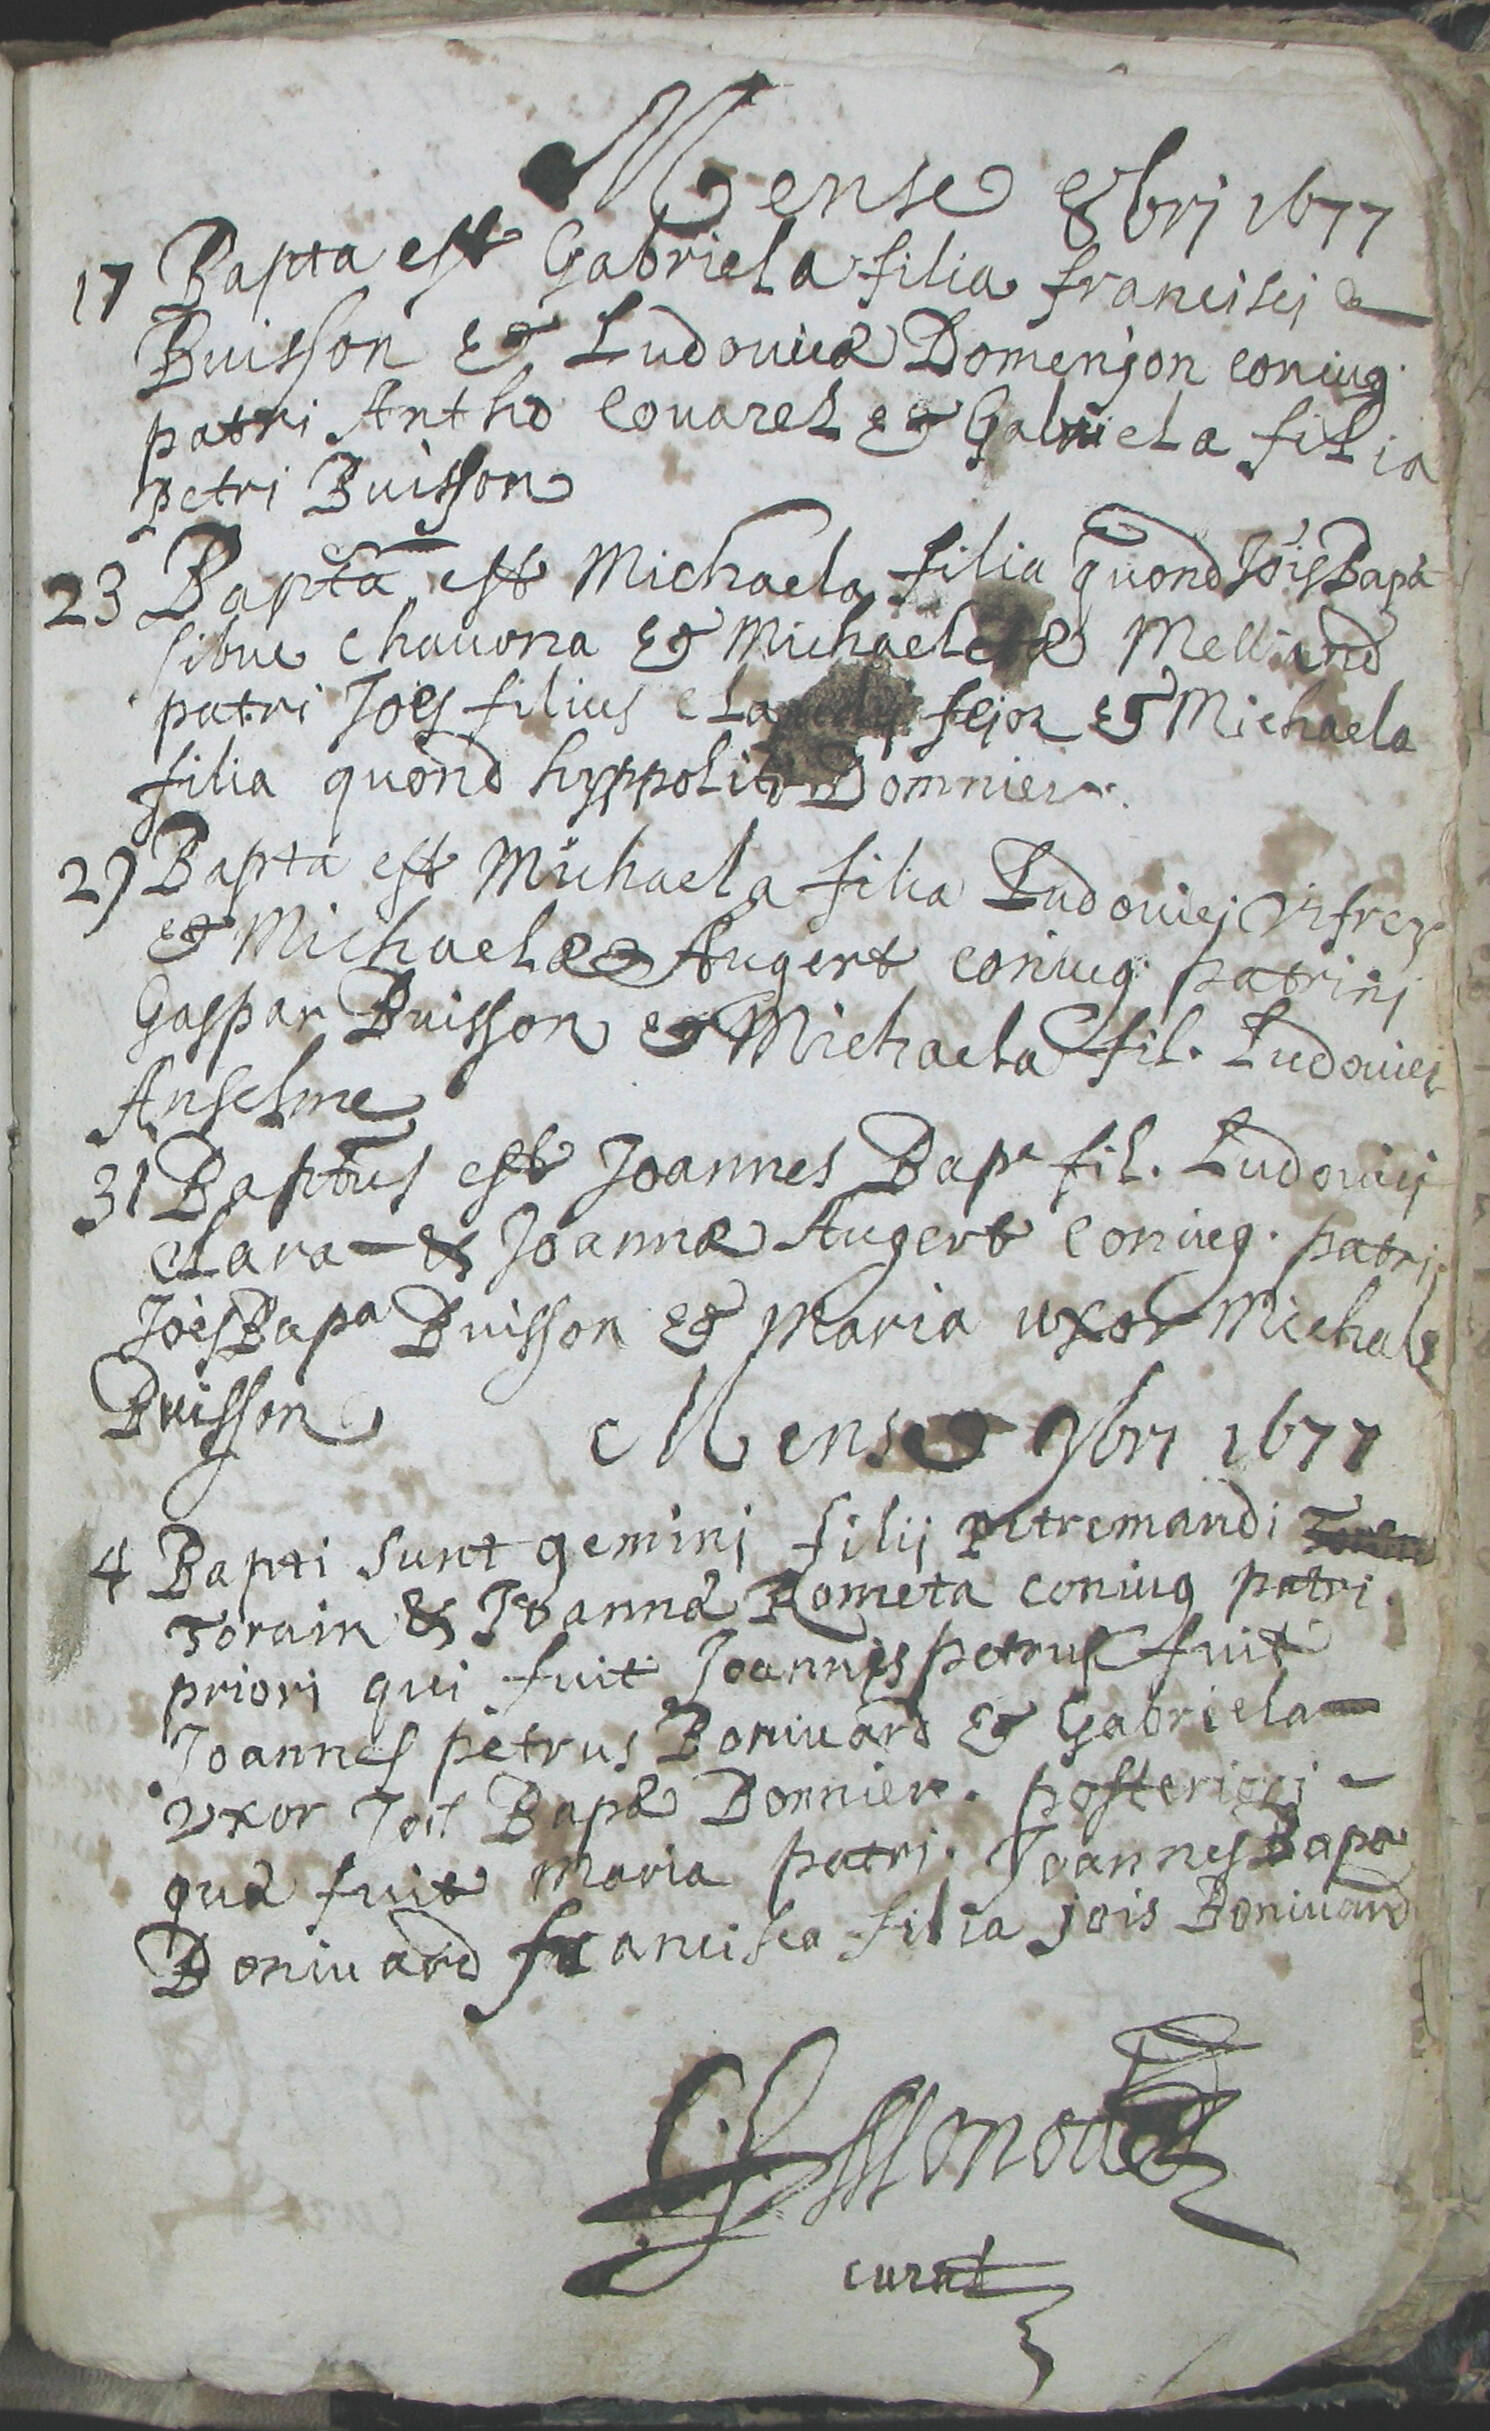 Mense 8bri 1677
17 Bapta est Gabriela filia francisci
Buisson & Ludovicæ Domenjon coniug.
patri Antho Couarel & Gabriela filia
petri Buisson
23 Bapta est Michaela filia quond Jois Bapa
sibue chauona & Michaelæ Melliand
patri Joes filius & Michaela
filia quond hyppoliti Domnier.
29 Bapta est Michaela filia Ludovici
& Michaelæ Augert coniug. patrinj
Gaspar Buisson & Michaela fil. Ludovici
Anselme
31 Baptus est Joannes Bapa fil. Ludovicj
Clara & Joannæ Augert coniug. patrj.
Jois Bapa Buisson & Maria uxor Michaelis
Buisson
Mense 9bri 1677
4 Bapti sunt geminj filij petremandi
Torain & Joannæ Rometa coniug patri.
priori qui fuit Joannes petrus fuit
Joannes petrus Boniuard & Gabriela
vxor Jois Bapæ Bonnier. posteriori
quæ fuit Maria patri. Joannes Bapa
Boniuard francisca filia jois Boniuard
curat